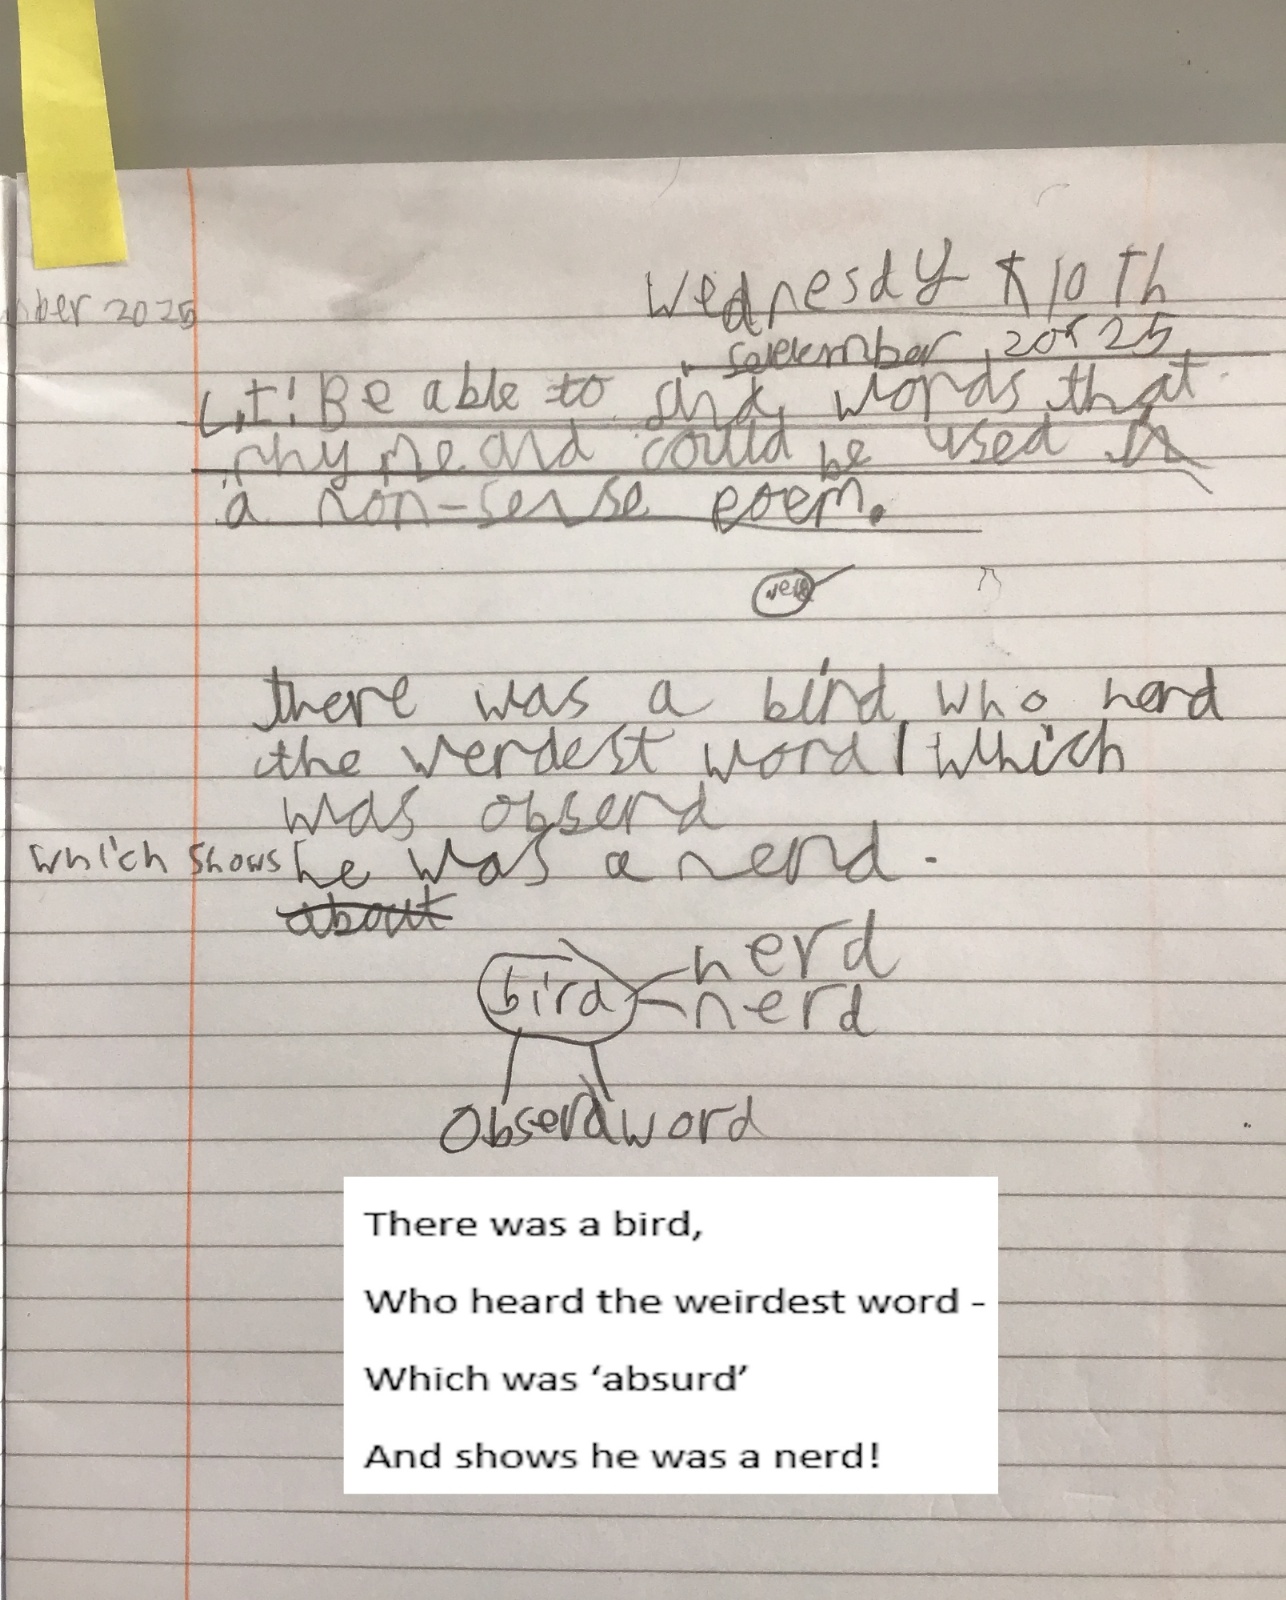 mber 2025
Wednesdy 10 Th
September 2025
L.I: Be able to find words that
rhyme and could be used in
a non-sense poem.
there was a bird who herd
the werdest word which
was obserd
which shows he was a nerd.
about
bird
herd
nerd
Obserd
word
There was a bird,
Who heard the weirdest word -
Which was ‘absurd’
And shows he was a nerd!